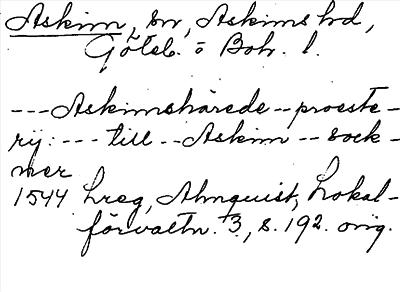 Askim, sn, Askims hd,
Göteb. o Boh. l.
---Askimshärede--proeste-
rij:---till--Askim--sock-
ner
1544 Lreg, Almquist, Lokal-
förvaltn. 3, s. 192. orig.